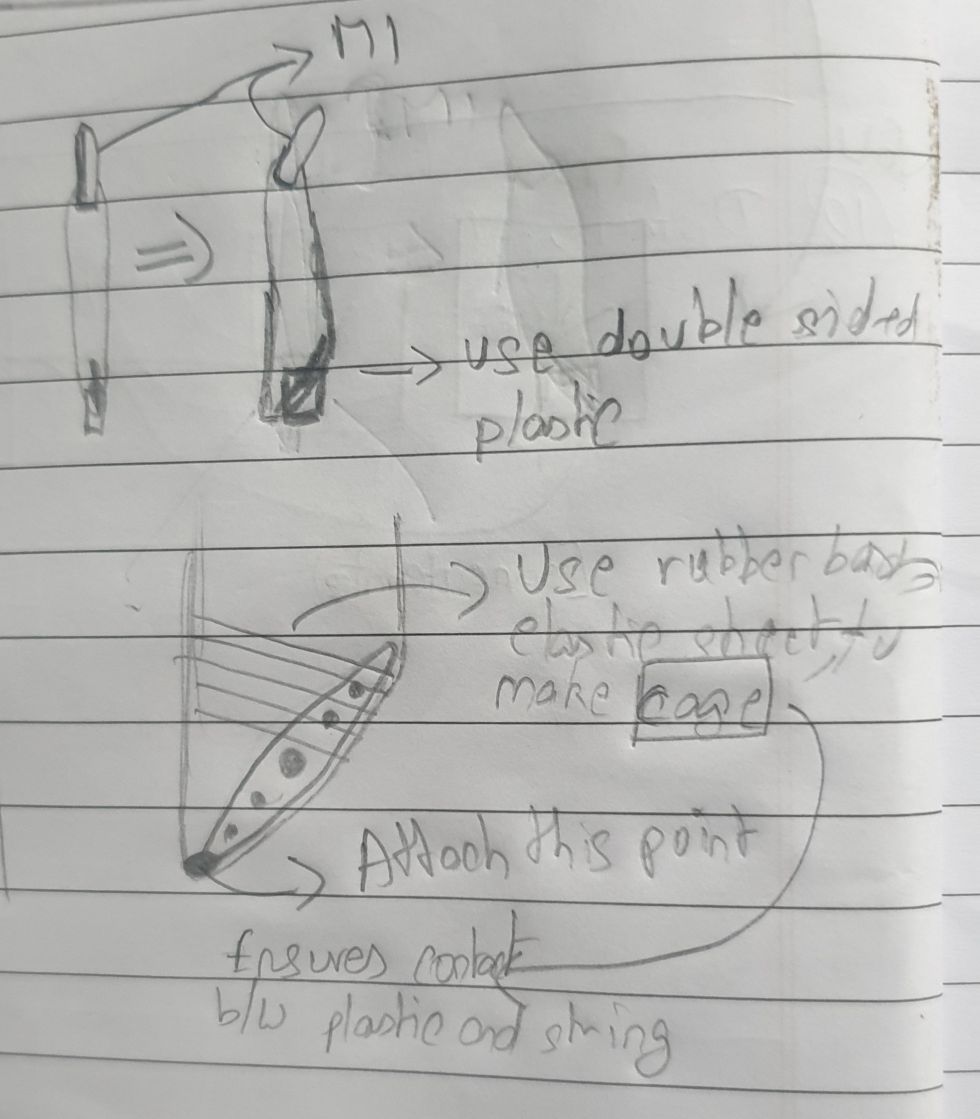 M1
⇒
→ use double sided
plastic
→ Use rubber bands
elastic sheet to
make cage
→ Attach this point
Ensures contact
b/w plastic and string